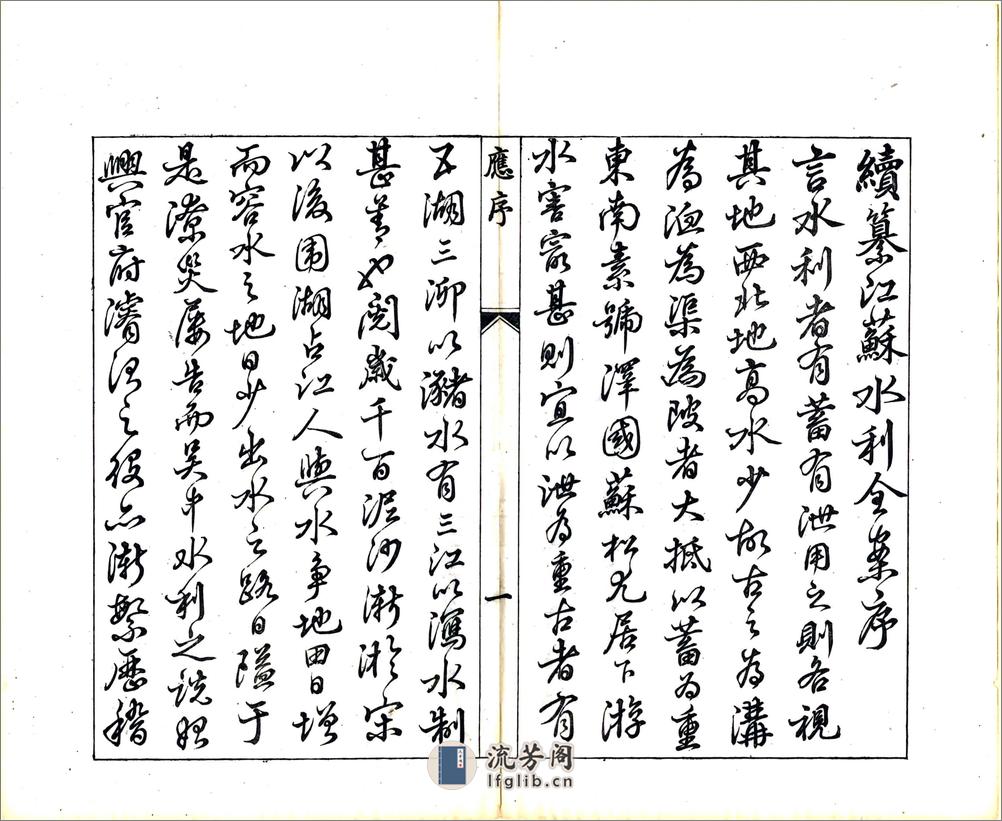 續纂江蘇水利全案序
言水利者有蓄有泄用之則各視
其地西北地高水少故古之為溝
為洫為渠為陂者大抵以蓄為重
東南素號澤國蘇松尤居下游
水害寔甚則宜以泄為重古者有
應序
一
五湖三泖以瀦水有三江以瀉水制
甚善也閱歲千百泥沙漸淤宋
以後圍湖占江人與水爭地田日增
而容水之地日少出水之路日隘于
是潦災屢告而吳中水利之說始
興官府濬治之役亦漸繁歷稽
流芳阁
lfglib.cn